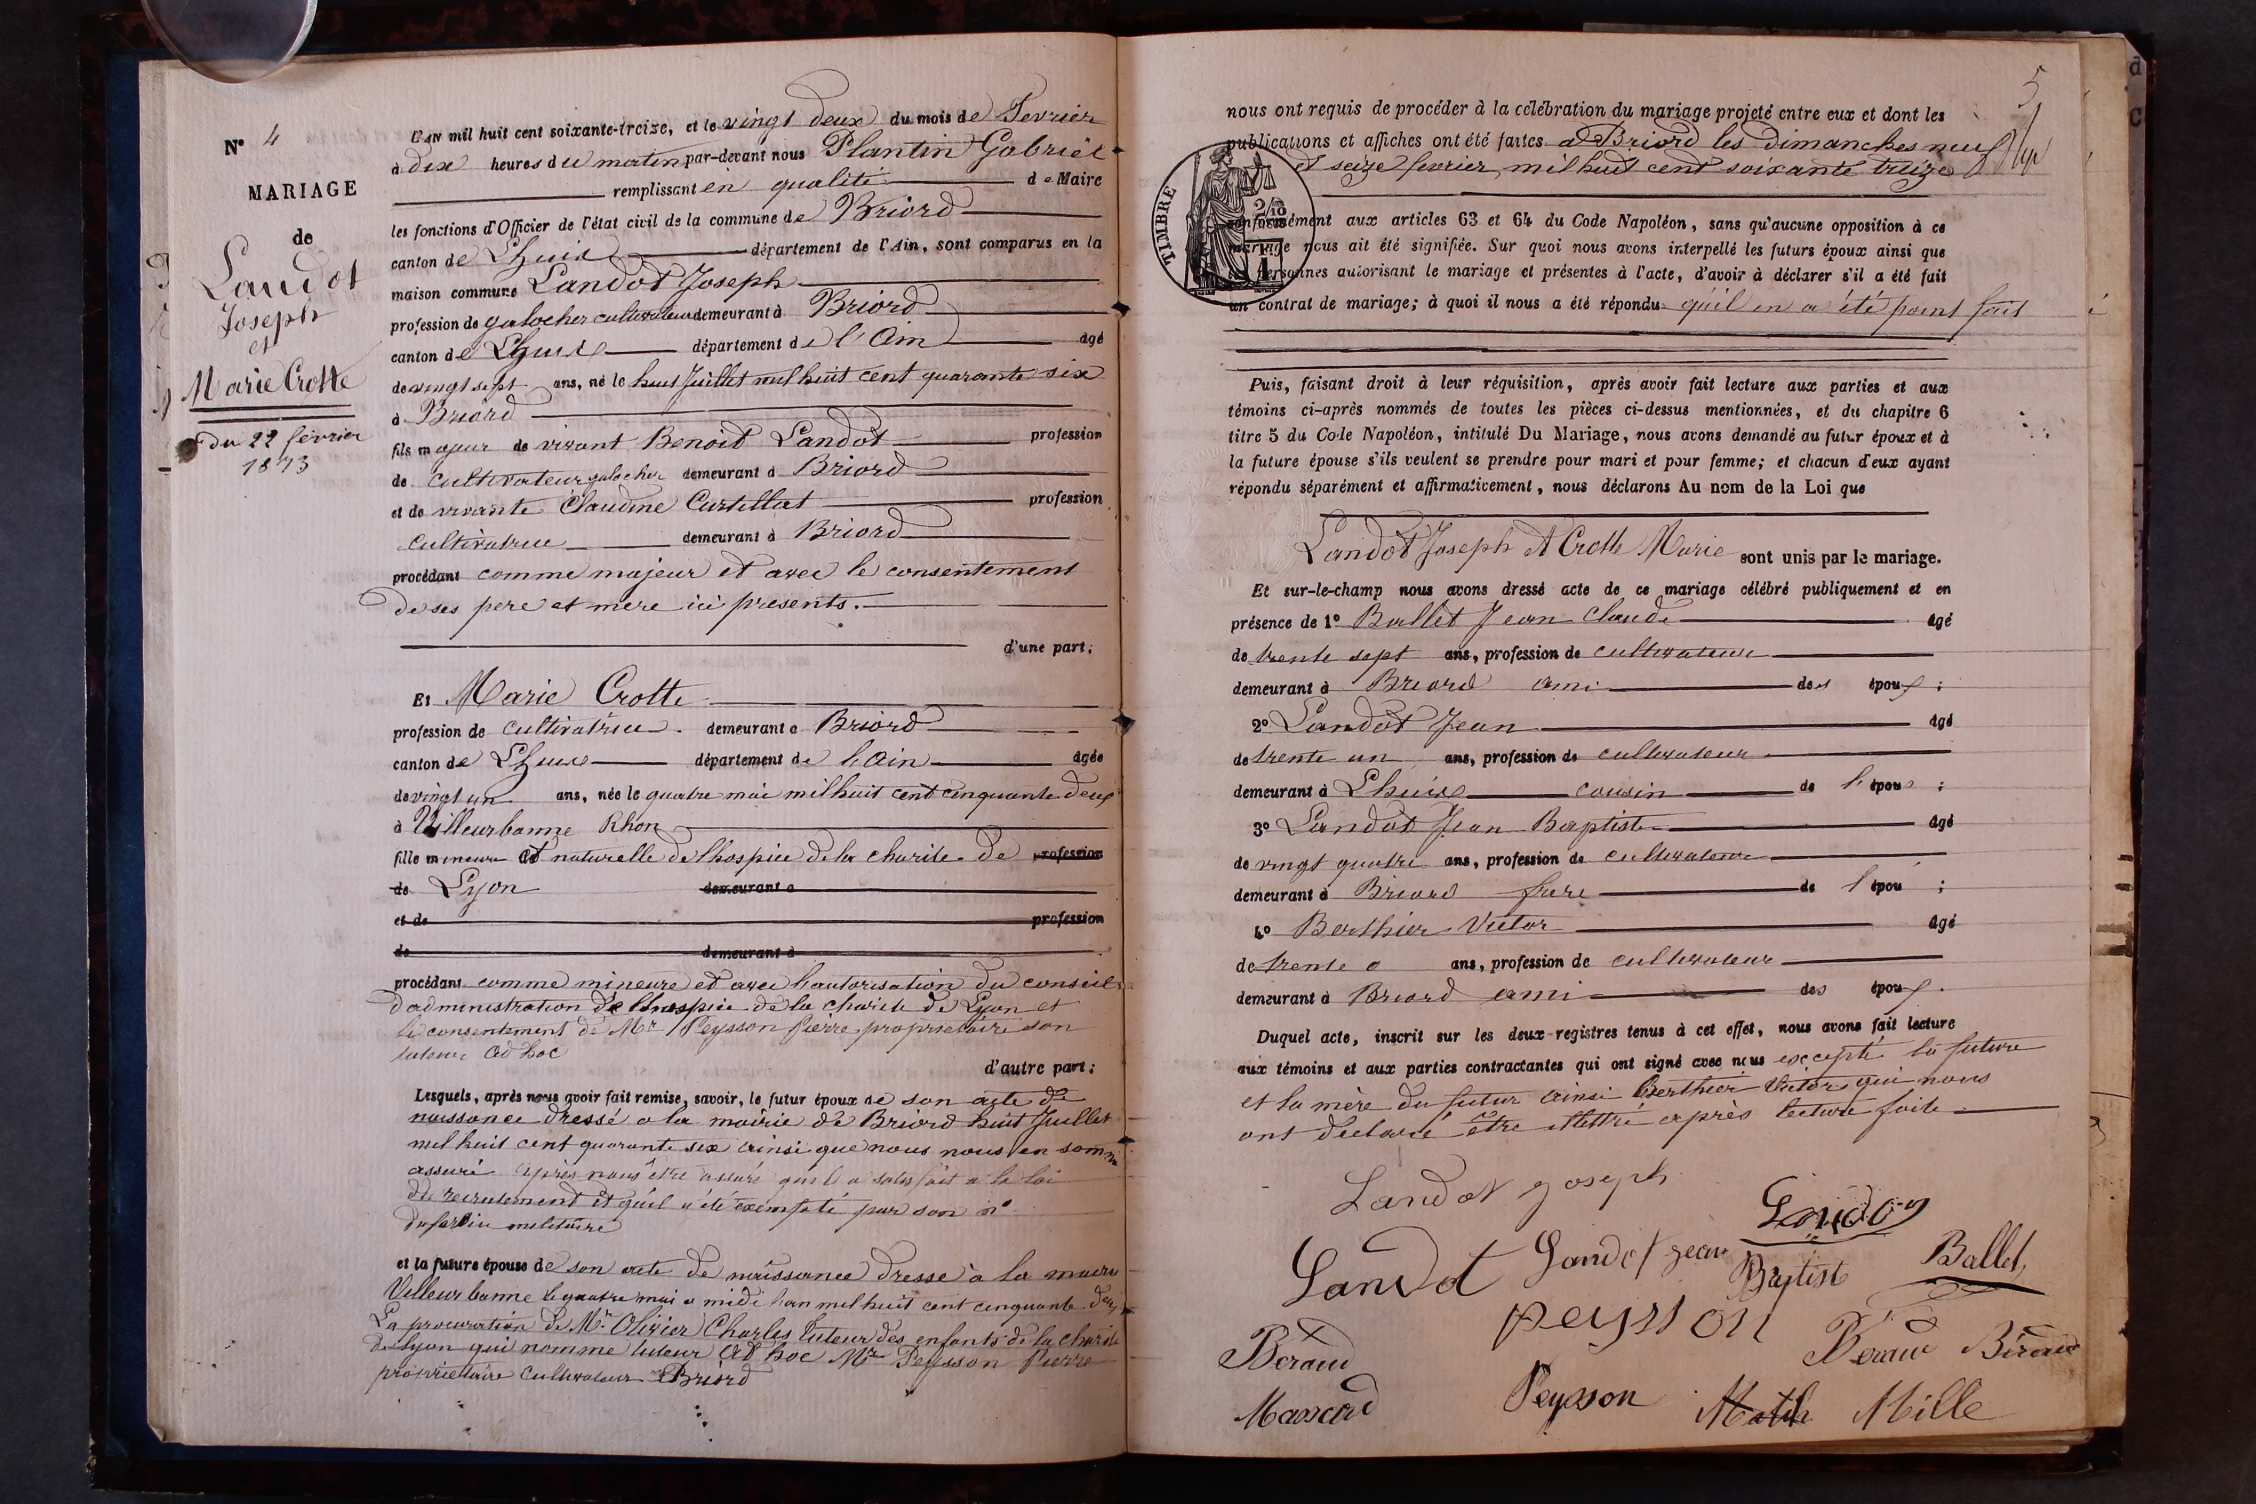 N° 4
MARIAGE
de
Landot
Joseph
et
Marie Crotte
du 22 février
1873
L'an mil huit cent soixante-treize, et le vingt deux du mois de Fevrier
à dix heures du matin par-devant nous Plantin Gabriel
remplissant en qualité de Maire
les fonctions d'Officier de l'état civil de la commune de Briord
canton de Lhuis département de l'Ain, sont comparus en la
maison commune Landot Joseph
profession de galocher cultivateur demeurant à Briord
canton de Lhuis département de l'Ain âgé
de vingt sept ans, né le huit Juillet mil huit cent quarante six
à Briord
fils majeur de vivant Benoit Landot profession
de cultivateur galocher demeurant à Briord
et de vivante Claudine Curtillat profession
cultivatrice demeurant à Briord
procédant comme majeur et avec le consentement
de ses pere et mere ici presents.
d'une part;
Et Marie Crotte
profession de cultivatrice demeurant a Briord
canton de Lhuis département de l'Ain âgée
de vingt un ans, née le quatre mai mil huit cent cinquante deux
à Villeurbanne Rhon
fille mineure et naturelle de l'hospice de la charite de profession
de Lyon demeurant a
et de profession
de demeurant à
procédant comme mineure et avec l'autorisation du conseil
d'administration de l'hospice de la charite de Lyon et
le consentement de Mr Peysson Pierre propriétaire son
tuteur ad hoc
d'autre part;
Lesquels, après nous avoir fait remise, savoir, le futur époux de son acte de
naissance dressé a la mairie de Briord huit Juillet
mil huit cent quarante six ainsi que nous nous en somme
assuré après nous être assuré qu'il a satisfait a la loi
du recrutement et qu'il a été exempté par son n°
et la future épouse de son acte de naissance dresse à la mairie
Villeurbanne le quatre mai a midi l'an mil huit cent cinquante deux
La procuration de Mr Olivier Charles tuteur des enfants de la charite
de Lyon qui nomme tuteur ad hoc Mr Peysson Pierre
propriétaire cultivateur a Briord
5
nous ont requis de procéder à la célébration du mariage projeté entre eux et dont les
publications et affiches ont été faites a Briord les Dimanches neuf
et seize fevrier mil huit cent soixante treize
TIMBRE
2/10
conformément aux articles 63 et 64 du Code Napoléon, sans qu'aucune opposition à ce
mariage nous ait été signifiée. Sur quoi nous avons interpellé les futurs époux ainsi que
les personnes autorisant le mariage et présentes à l'acte, d'avoir à déclarer s'il a été fait
un contrat de mariage; à quoi il nous a été répondu qu'il en a été point fait
Puis, faisant droit à leur réquisition, après avoir fait lecture aux parties et aux
témoins ci-après nommés de toutes les pièces ci-dessus mentionnées, et du chapitre 6
titre 5 du Code Napoléon, intitulé Du Mariage, nous avons demandé au futur époux et à
la future épouse s'ils veulent se prendre pour mari et pour femme; et chacun d'eux ayant
répondu séparément et affirmativement, nous déclarons Au nom de la Loi que
Landot Joseph et Crotte Marie sont unis par le mariage.
Et sur-le-champ nous avons dressé acte de ce mariage célébré publiquement et en
présence de 1° Ballet Jean Claude âgé
de trente sept ans, profession de cultivateur
demeurant à Briord ami des époux;
2° Landot Jean âgé
de trente un ans, profession de cultivateur
demeurant à Lhuis cousin de l'époux;
3° Landot Jean Baptiste âgé
de vingt quatre ans, profession de cultivateur
demeurant à Briord frere de l'épou;
4° Berthier Victor âgé
de trente ans, profession de cultivateur
demeurant à Briord ami des époux.
Duquel acte, inscrit sur les deux registres tenus à cet effet, nous avons fait lecture
aux témoins et aux parties contractantes qui ont signé avec nous excepté la future
et la mère du futur ainsi Berthier Victor qui nous
ont déclaré être illettré après lecture faite
Landot Joseph
Landot
Landot jean
Baptiste
Ballet
peysson
Beraud
Beraud
Massard
Peysson
Mille